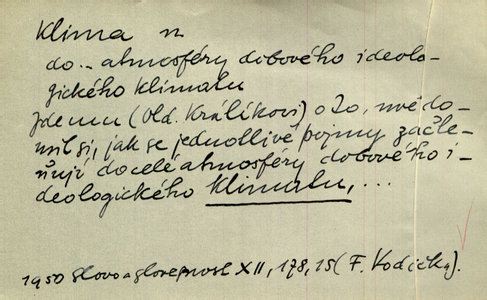 Klima n
do... atmosféry dobového ideolo-
gického klimatu
Jde mu (Old. Králíkovi) o to, uvědo-
mit si, jak se jednotlivé pojmy začle-
ňují do celé atmosféry dobového i-
deologického klimatu, ...
1950 Slovo a slovesnost XII, 178, 15 (F. Vodička).